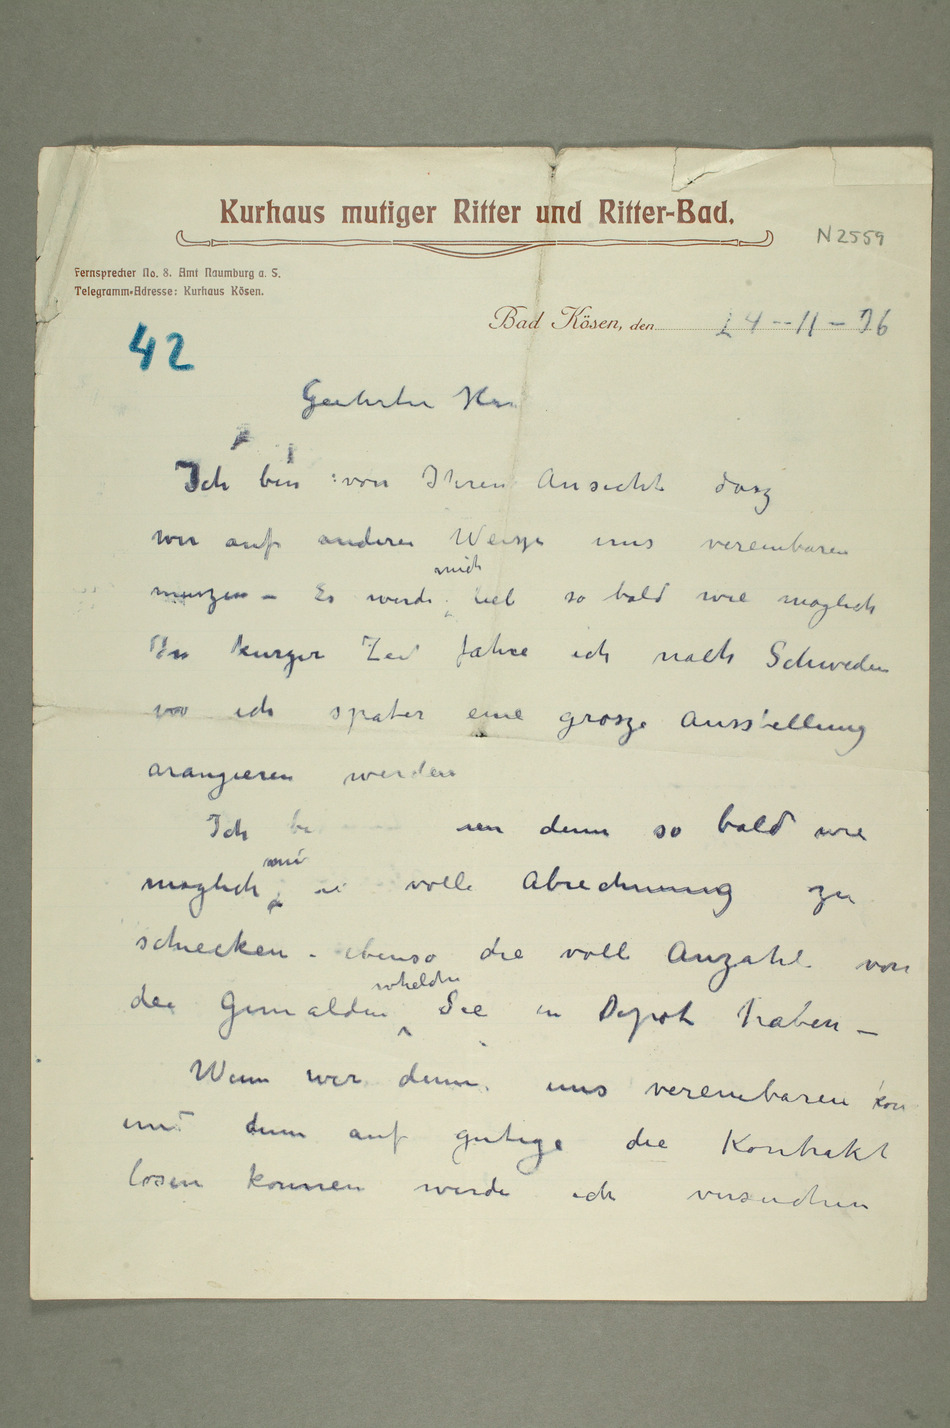 Kurhaus mutiger Ritter und Ritter-Bad.
N2559
Fernsprecher No. 8. Amt Naumburg a. S.
Telegramm-Adresse: Kurhaus Kösen.
Bad Kösen, den 24--11-06
42
Geehrter Herr
Ich bin von Ihren Ansicht dasz
wir auf anderen Weisze uns vereinbaren
muszen - Es werde mich lieb so bald wie moglich
In kurzer Zeit fahre ich nach Schweden
wo ich spater eine grosze Ausstellung
arangieren werden
Ich denn so bald wie
moglich mir volle Abrechnung zu
schiecken - ebenso die voll Anzahl von
die Gemalden whelche Sie in Depot haben -
Wenn wir denn uns vereinbaren kon
und denn auf gutige die Kontrakt
losen konnen werde ich versuchen